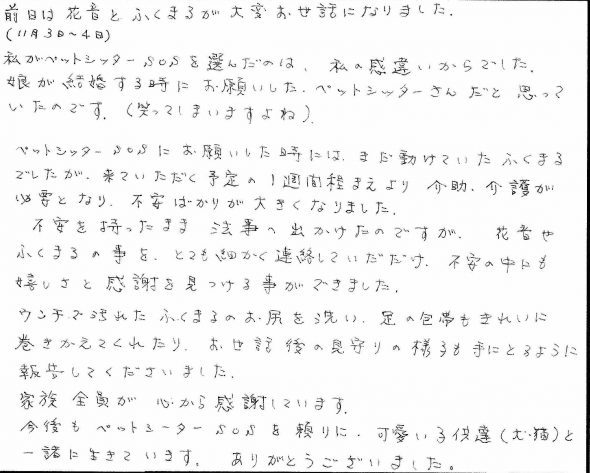 前日は花音とふくまるが大変お世話になりました.
(11月3日〜4日)
私がペットシッターSOSを選んだのは、私の感違いからでした.
娘が結婚する時にお願いした.ペットシッターさんだと思って
いたのです.(笑ってしまいますよね).
ペットシッターSOSにお願いした時には、まだ動けていたふくまる
でしたが、来ていただく予定の1週間程まえより 介助、介護が
必要となり、不安ばかりが大きくなりました.
不安を持ったまま 法事へ出かけたのですが、花音や
ふくまるの事を、とても細かく連絡していだだけ、不安の中にも
嬉しさと感謝を見つける事ができました.
ウンチで汚れたふくまるのお尻を洗い、足の包帯もきれいに
巻きかえてくれたり、お世話後の見守りの様子も手にとるように
報告してくださいました.
家族全員が心から感謝しています.
今後もペットシーターSOSを頼りに、可愛いる供達(犬・猫)と
一諸に生きています. ありがとうございました.